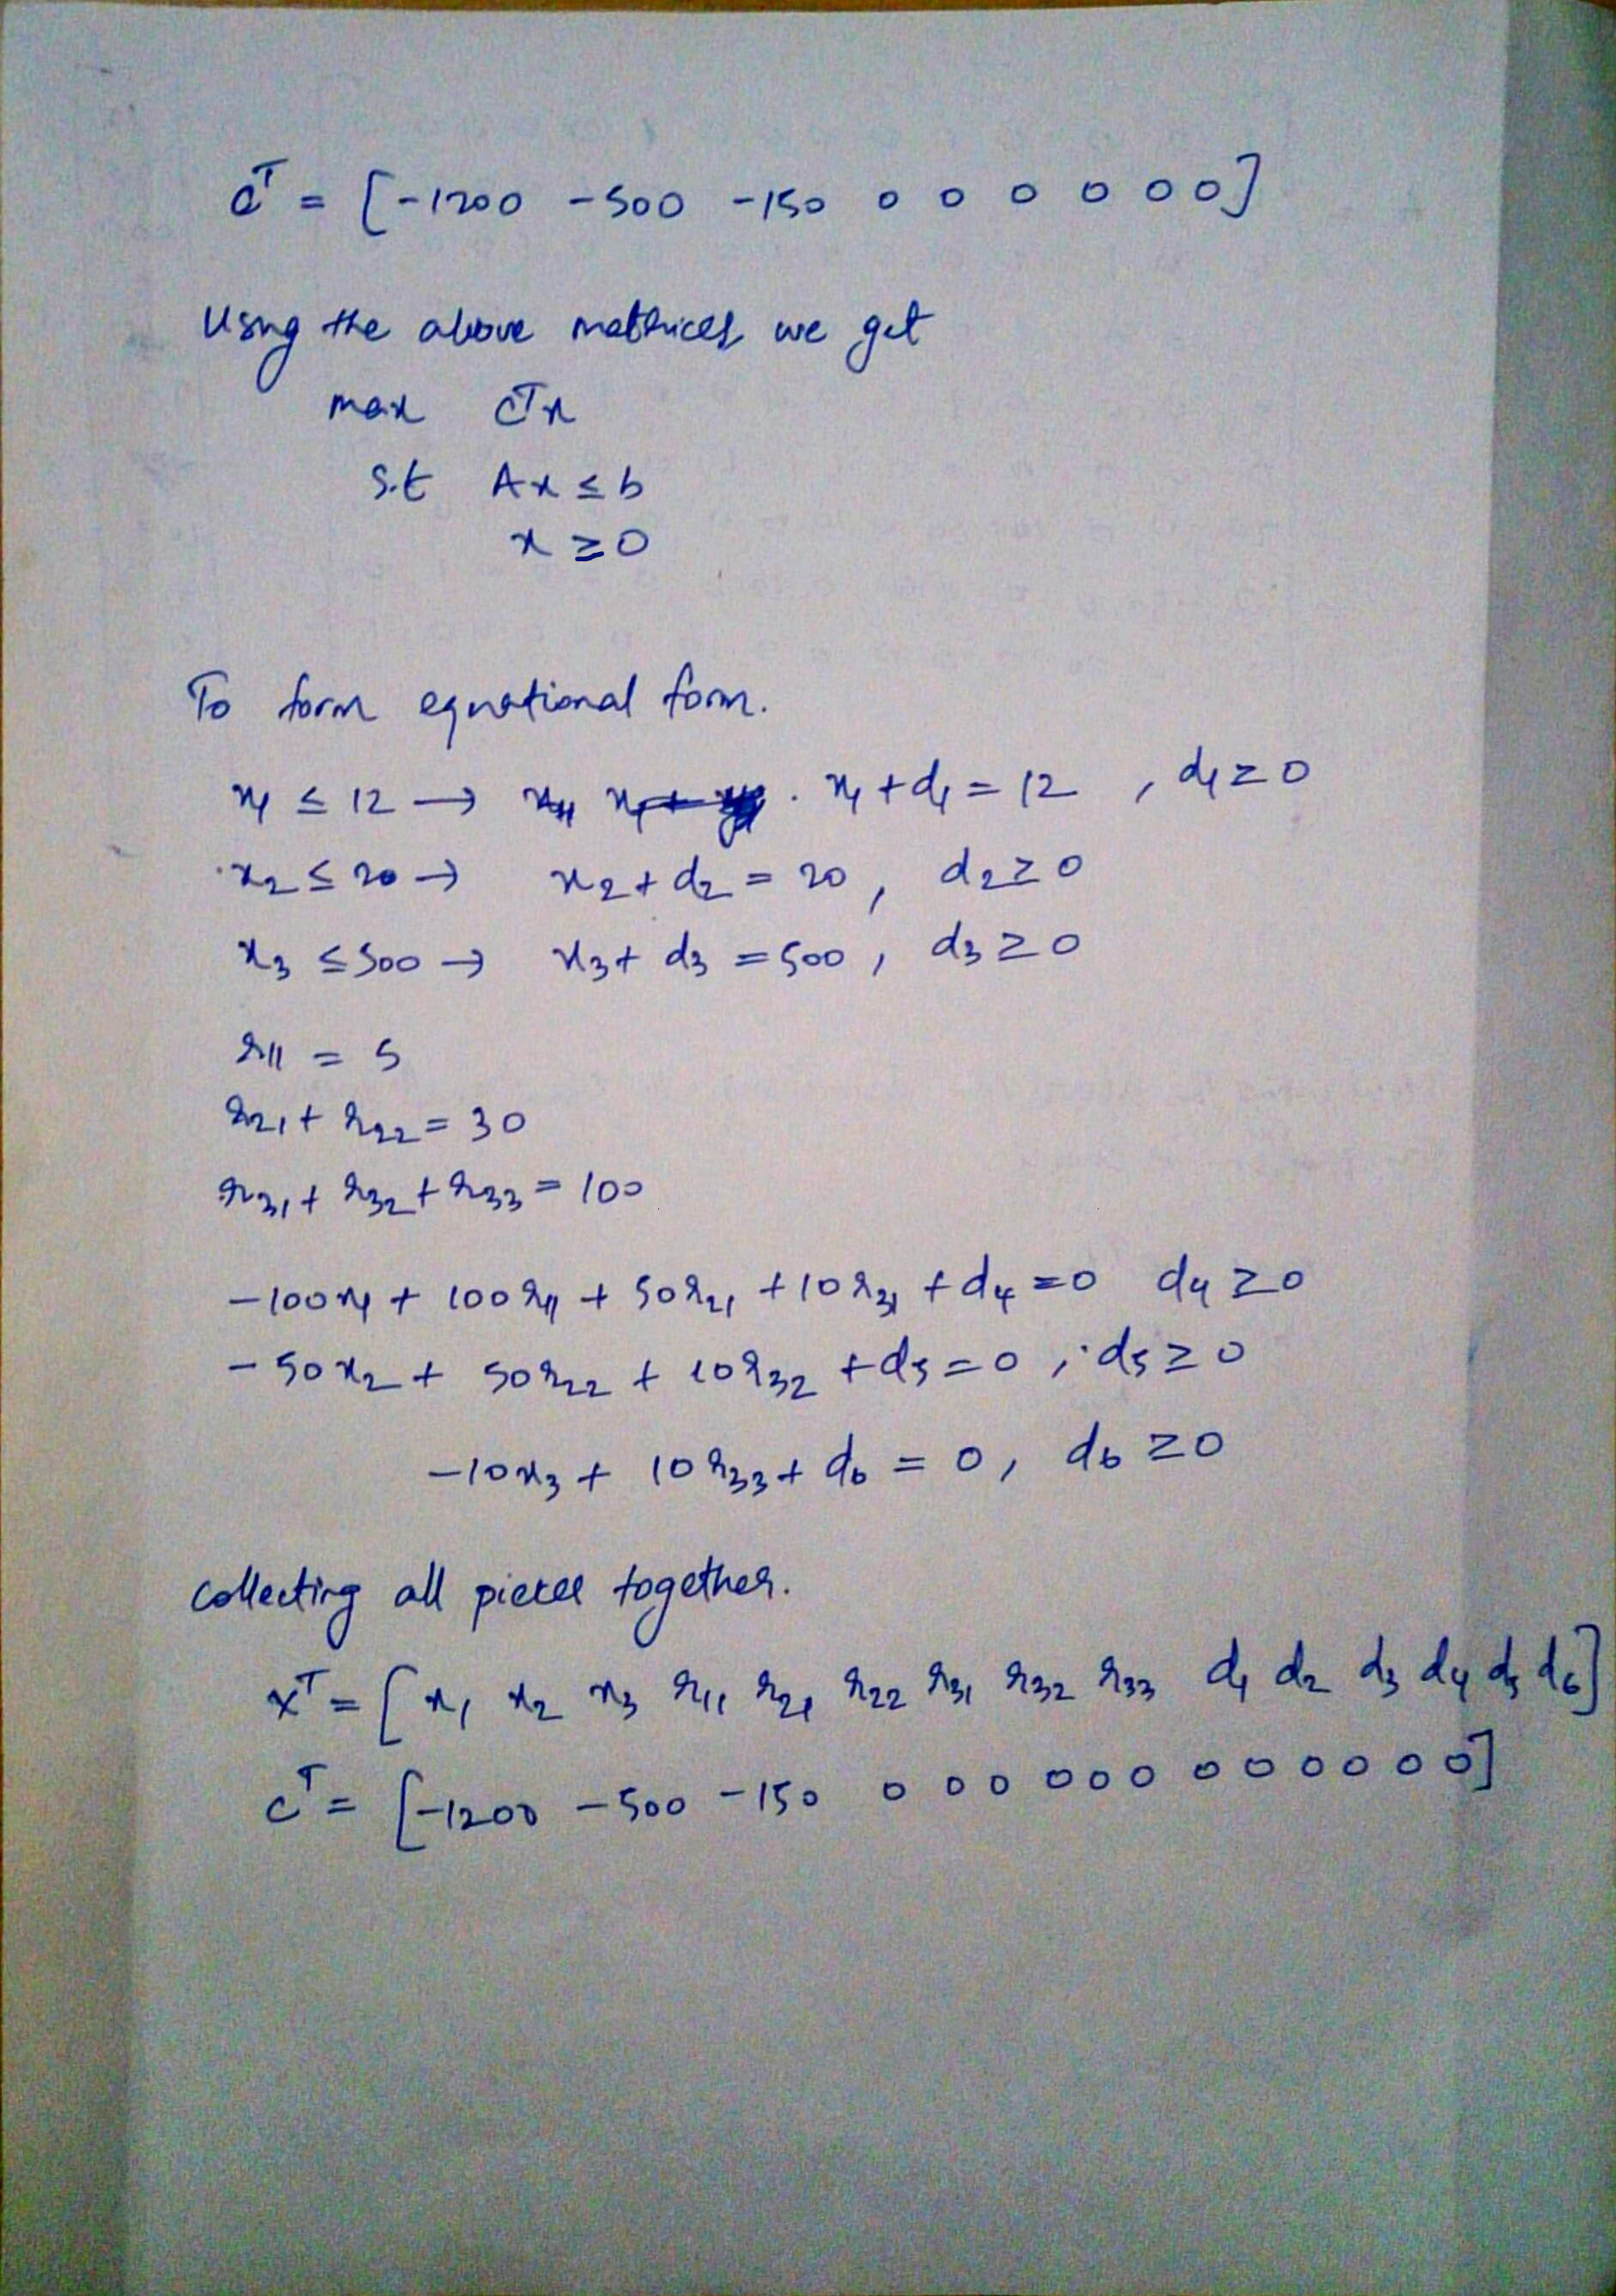 c̄ᵀ = [-1200 -500 -150 0 0 0 0 0 0]
Using the above matrices we get
max c̄ᵀx
s.t Ax ≤ b
x ≥ 0
To form equational form.
x₁ ≤ 12 → x₁ + d₁ = 12 , d₁ ≥ 0
x₂ ≤ 20 → x₂ + d₂ = 20 , d₂ ≥ 0
x₃ ≤ 500 → x₃ + d₃ = 500 , d₃ ≥ 0
r₁₁ = 5
r₂₁ + r₂₂ = 30
r₃₁ + r₃₂ + r₃₃ = 100
-100x₁ + 100r₁₁ + 50r₂₁ + 10r₃₁ + d₄ = 0 d₄ ≥ 0
-50x₂ + 50r₂₂ + 10r₃₂ + d₅ = 0 , d₅ ≥ 0
-10x₃ + 10r₃₃ + d₆ = 0 , d₆ ≥ 0
Collecting all pieces together.
xᵀ = [x₁ x₂ x₃ r₁₁ r₂₁ r₂₂ r₃₁ r₃₂ r₃₃ d₁ d₂ d₃ d₄ d₅ d₆]
cᵀ = [-1200 -500 -150 0 0 0 0 0 0 0 0 0 0 0 0]